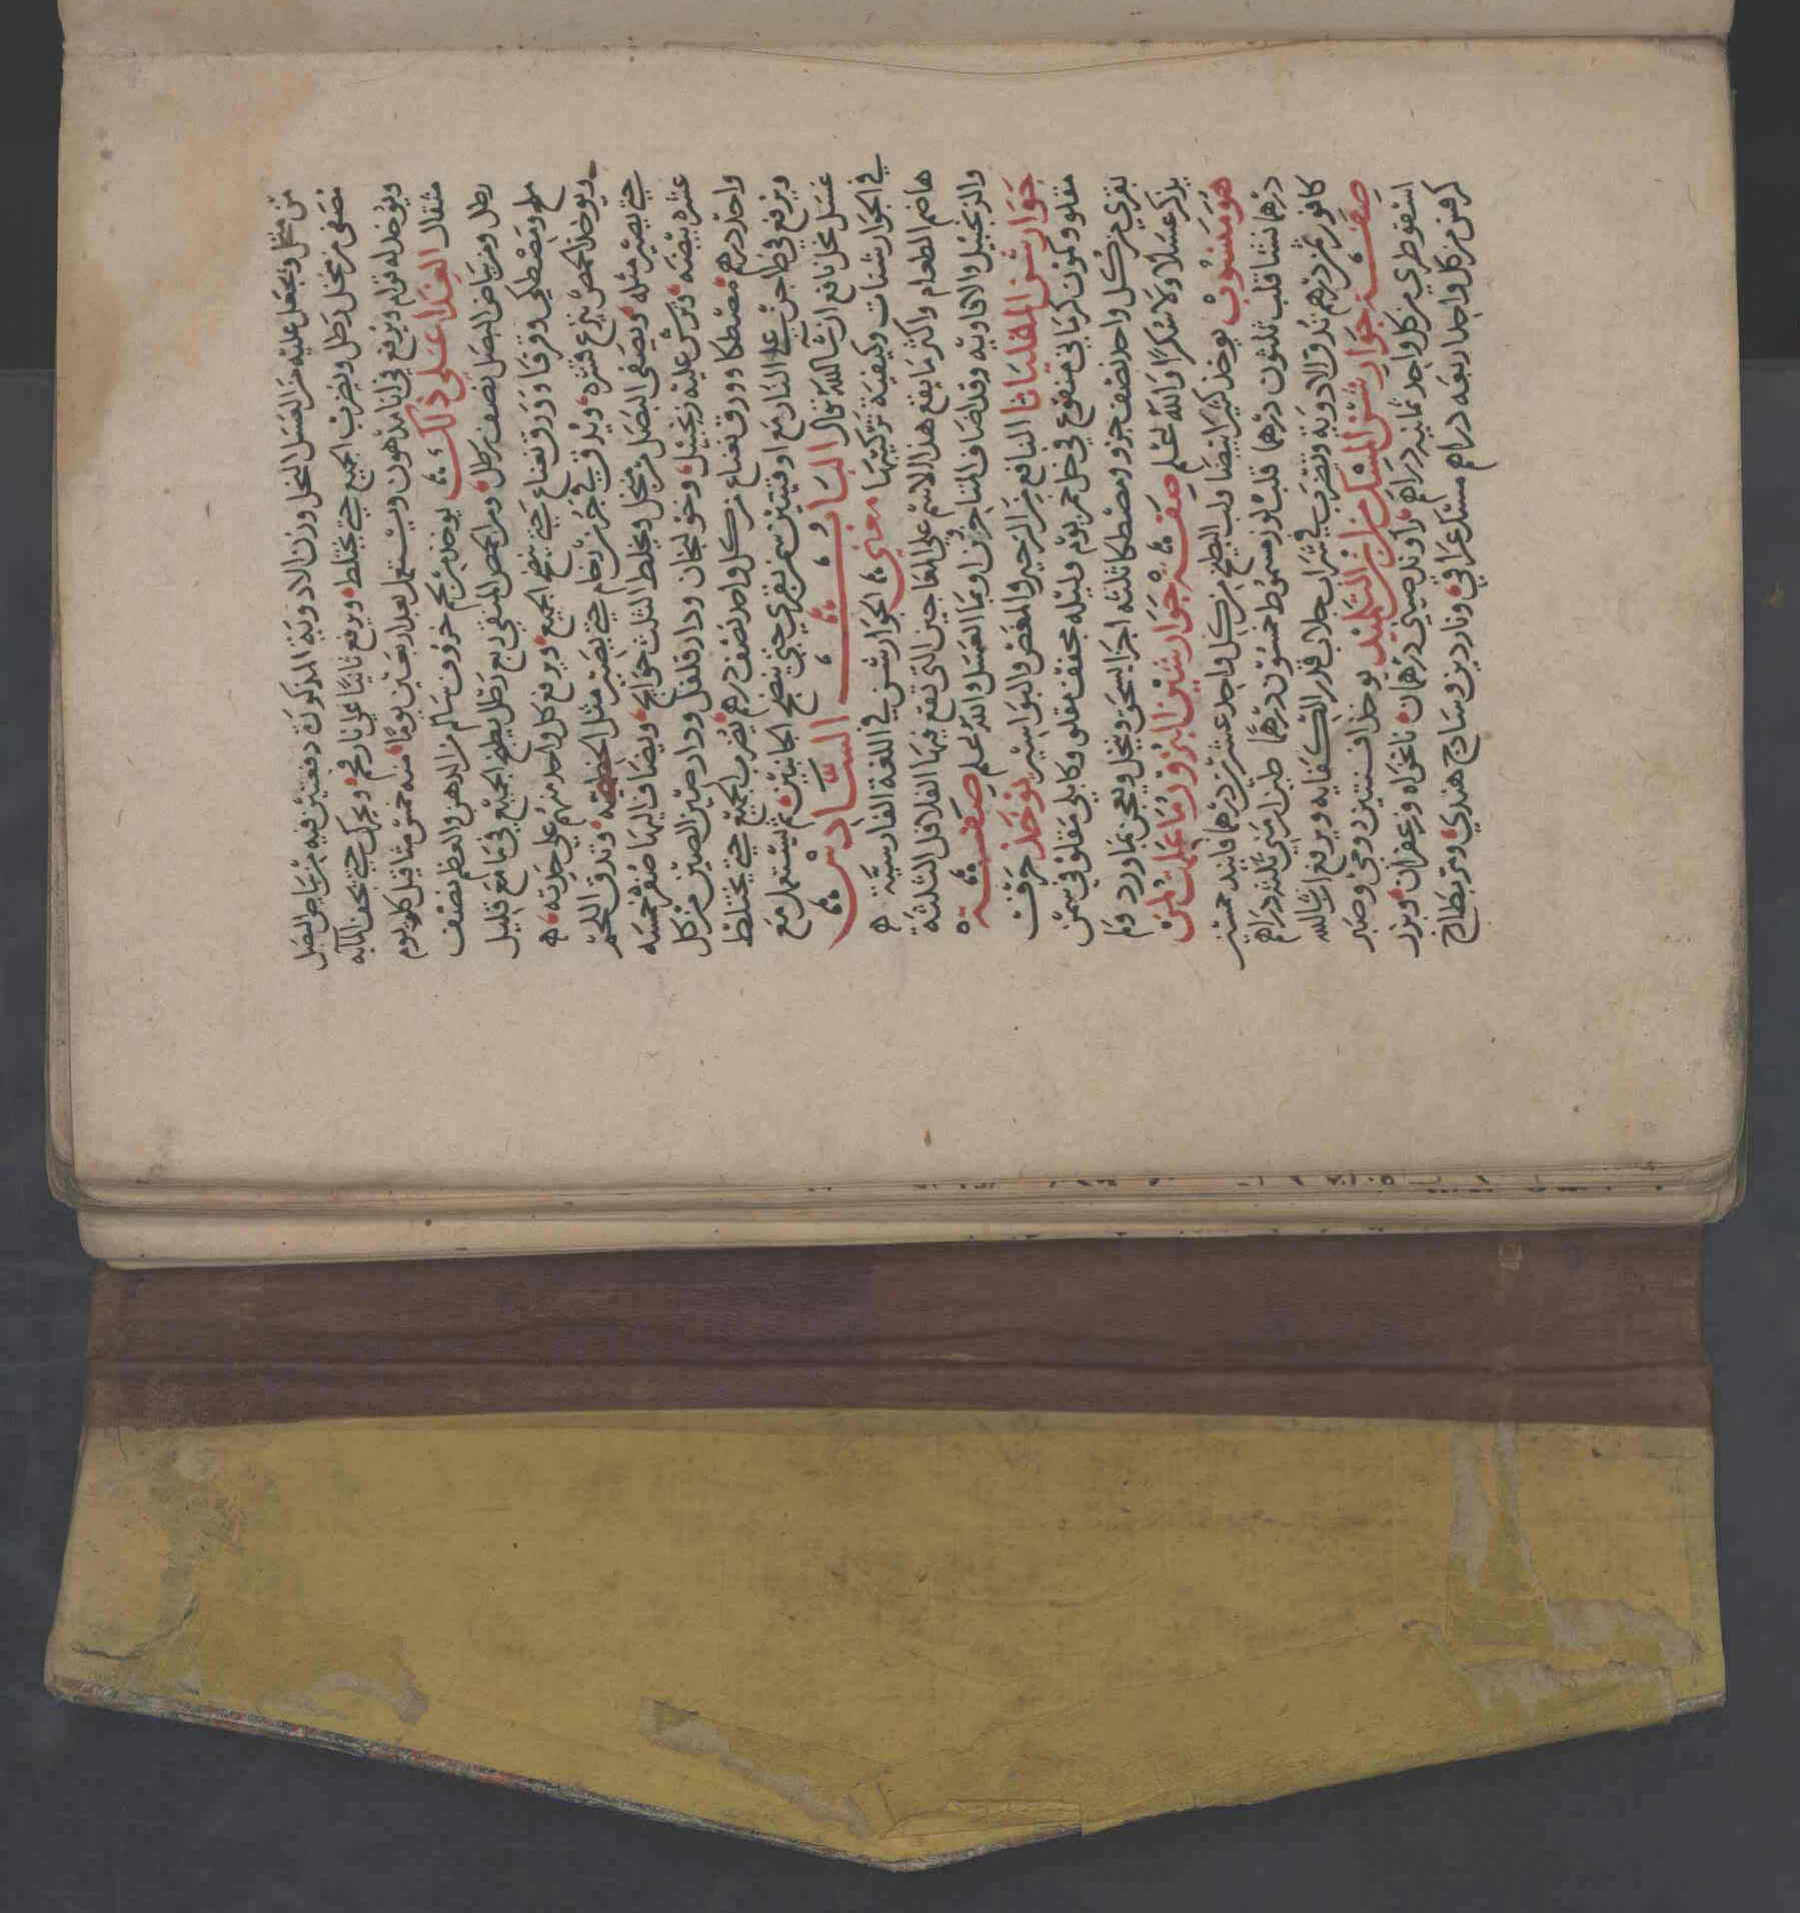 من منخل ويجعل عليه من العسل النحل وزن الادوية المذكورة دفعتين فيه من بياض البصل
مصفى من منخل رطل ويضرب الجميع حتى يختلط ويرفع ثانيا على نار فحم ويحرك حتى تجف المايه
ويؤخذ له قوام ويرفع في انا مدهون ويستعمل بعد اربعين يوما منه خمس مثاقيل كل يوم
مثقال الغذا على ذلك يوخذ شرايح خروف سالم من الدهن والعظم نصف
رطل ومن بياض البصل نصف رطل ومن الحمص المنقى ربع رطل يطبخ الجميع في ماء مع قليل
ملح ومصطكى وقرفا وورق نعناع حتى ينضج الجميع ويرفع كل واحد منهم على حدته
ويوخذ الحمص ينزع قشره ويدق في جرن رخام حتى يصير مثل الخطمية وتدق اللحم
حتى يصير مثله ويصفى البصل من منخل ويخلط الثلث حوايج ويضاف اليها صفر خمسه
عشره بيضه ويرش عليه زنجبيل وخولنجان ودار فلفل ودار صيني الصين من كل
واحد درهم مصطكا وورق نعناع من كل واحد نصف درهم يضرب الجميع حتى يختلط
ويرفع في طاجن على النار مع اوقيتين سمن بقري حتى ينضج الجانبين ثم يستعمل مع
عسل نحل نافع ان شا الله تعالى الباب السادس
في الجوارشنات وكيفية تركيبها معنى الجوارشن في اللغة الفارسية
هاضم الطعام واكثر ما يقع هذا الاسم على المعاجين التي تقع فيها الفلافل الثلثة
والزنجبيل والافاويه وقد اضاف المتاخرون اوبما العسل والله اعلم صفة
جوارشن المقلياثا النافع من الزحير والمغص والبواسير يوخذ حرف
مقلو وكمون كرماني منقوع في خل خمر يوم وليله مجفف مقلو وكابلي مقلو في سمن
بقري من كل واحد نصف جزو ومصطكا ثلثه اجزا يسحق وينخل ويعجن بماورد ولم
يذكر عسلا ولا سكرا والله اعلم صفة جوارشن البزور مما عملت لمن
هو منسوب يوخذ كثيرا بيضا ولب البطيخ من كل واحد عشرين درهما فانيد خمسين
درهما نشا قلب ثلثون درهما قلب لوز مسموط خمسون درهما طين ارمني ثلثه دراهم
كافور ثمن درهم تدق الادوية وتضرب في شراب جلاب قدر الكفايه ويرفع ان شا الله
صفة جوارشن المسك من التلميذ يوخذ افسنتين رومي وصبر
اسقوطري من كل واحد ثمانيه دراهم راوند صيني درهمان نانخواه وزعفران وبزر
كرفس من كل واحد اربعه دراهم مسك عراقي وناردين وساذج هندي ومر بطارخ